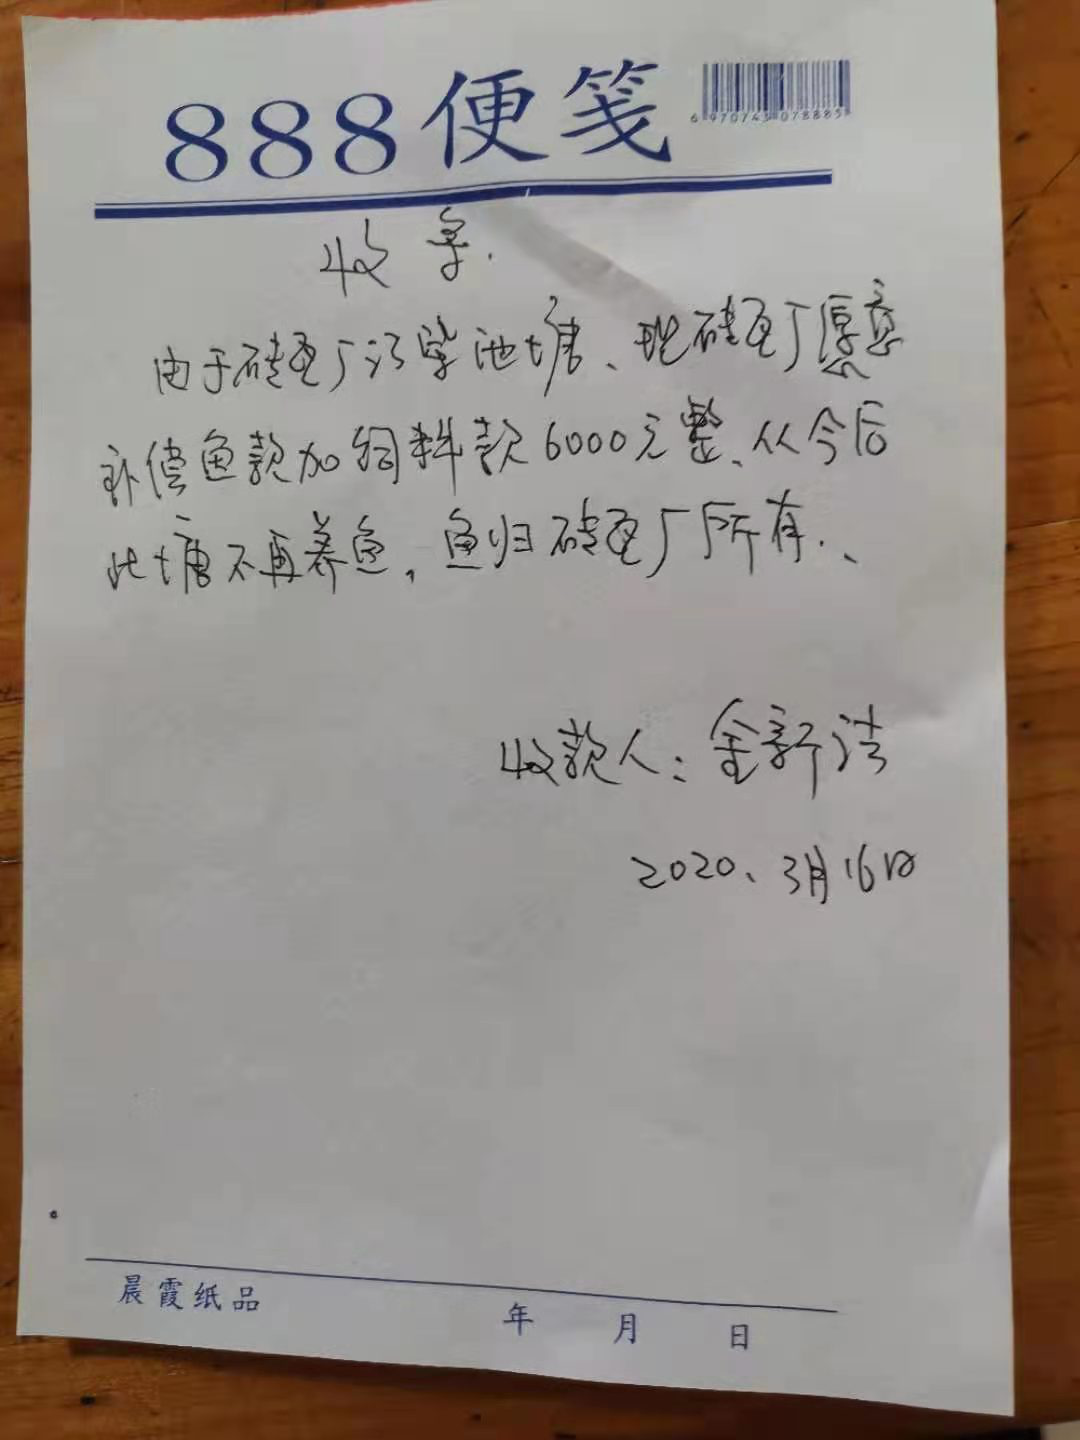 888便笺
6970743078885
收字.
由于砖瓦厂污染池塘、现砖瓦厂愿意
补偿鱼款加饲料款6000元整、从今后
此塘不再养鱼，鱼归砖瓦厂所有.、
收款人：金新法
2020、3月16日
晨霞纸品
年 月 日